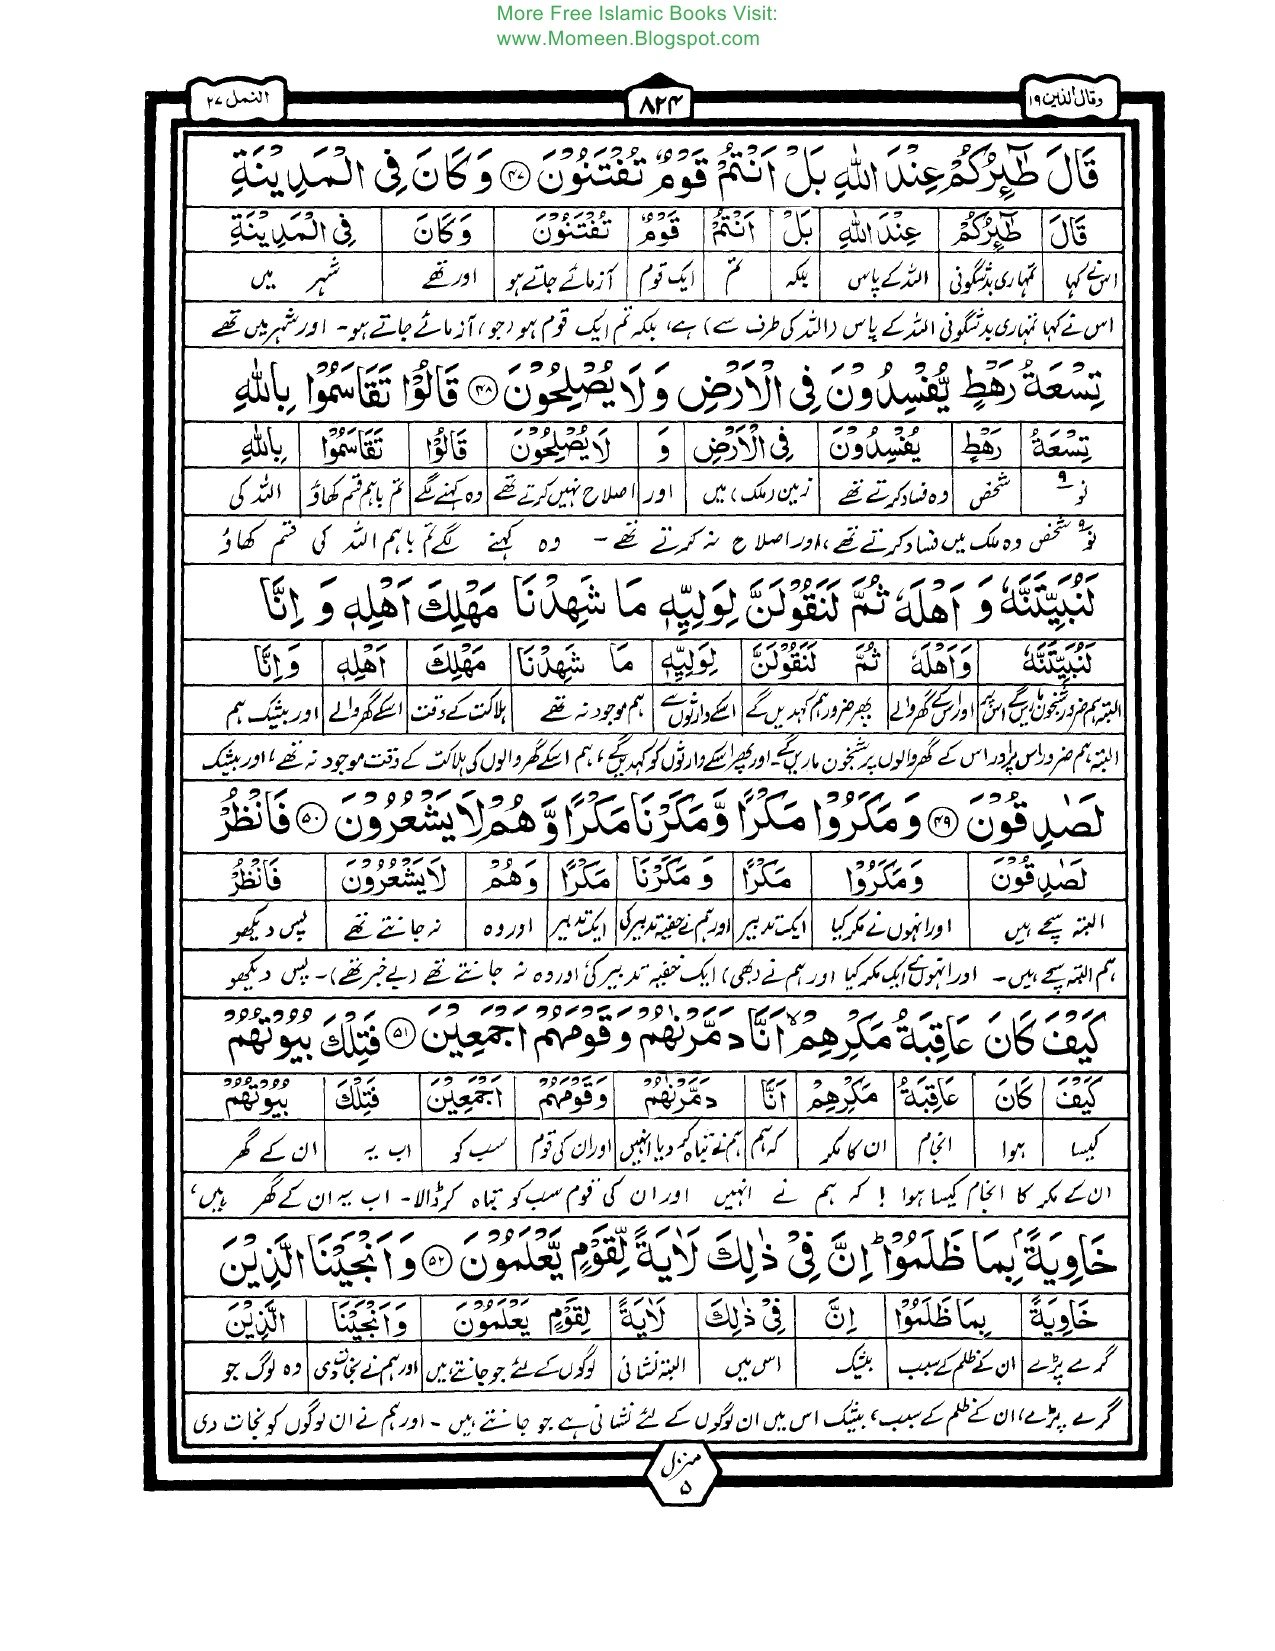 More Free Islamic Books Visit:
www.Momeen.Blogspot.com
وقال الذین ۱۹
۸۲۴
النمل ۲۷
قَالَ طٰٓئِرُكُمْ عِنْدَ اللّٰهِ بَلْ اَنْتُمْ قَوْمٌ تُفْتَنُوْنَ ۴۷ وَ كَانَ فِی الْمَدِیْنَةِ
قَالَ طٰٓئِرُكُمْ عِنْدَ اللّٰهِ بَلْ اَنْتُمْ قَوْمٌ تُفْتَنُوْنَ وَ كَانَ فِی الْمَدِیْنَةِ
اس نے کہا تمہاری بدشگونی اللہ کے پاس بلکہ تم ایک قوم آزمائے جاتے ہو اور تھے شہر میں
اس نے کہا تمہاری بدشگونی اللہ کے پاس (اللہ کی طرف سے) ہے، بلکہ تم ایک قوم ہو (جو) آزمائے جاتے ہو۔ اور شہر میں تھے
تِسْعَةُ رَهْطٍ یُّفْسِدُوْنَ فِی الْاَرْضِ وَ لَا یُصْلِحُوْنَ ۴۸ قَالُوْا تَقَاسَمُوْا بِاللّٰهِ
تِسْعَةُ رَهْطٍ یُفْسِدُوْنَ فِی الْاَرْضِ وَ لَا یُصْلِحُوْنَ قَالُوْا تَقَاسَمُوْا بِاللّٰهِ
نو ۹ شخص وہ فساد کرتے تھے زمین (ملک) میں اور اصلاح نہیں کرتے تھے وہ کہنے لگے تم باہم قسم کھاؤ اللہ کی
نو ۹ شخص وہ ملک میں فساد کرتے تھے، اور اصلاح نہ کرتے تھے۔ وہ کہنے لگے تم باہم اللہ کی قسم کھاؤ
لَنُبَیِّتَنَّهٗ وَ اَهْلَهٗ ثُمَّ لَنَقُوْلَنَّ لِوَلِیِّهٖ مَا شَهِدْنَا مَهْلِكَ اَهْلِهٖ وَ اِنَّا
لَنُبَیِّتَنَّهٗ وَاَهْلَهٗ ثُمَّ لَنَقُوْلَنَّ لِوَلِیِّهٖ مَا شَهِدْنَا مَهْلِكَ اَهْلِهٖ وَاِنَّا
البتہ ہم ضرور شبخون ماریں گے اس پر اور اس کے گھر والے پھر ضرور ہم کہدیں گے اسکے وارثوں سے ہم موجود نہ تھے ہلاکت کے وقت اسکے گھر والے اور بیشک ہم
البتہ ہم ضرور اس پر اور اس کے گھر والوں پر شبخون ماریں گے۔ اور پھر اسکے وارثوں کو کہدیں گے، ہم اسکے گھر والوں کی ہلاکت کے وقت موجود نہ تھے، اور بیشک
لَصٰدِقُوْنَ ۴۹ وَ مَكَرُوْا مَكْرًا وَّ مَكَرْنَا مَكْرًا وَّ هُمْ لَا یَشْعُرُوْنَ ۵۰ فَانْظُرْ
لَصٰدِقُوْنَ وَ مَكَرُوْا مَكْرًا وَ مَكَرْنَا مَكْرًا وَ هُمْ لَا یَشْعُرُوْنَ فَانْظُرْ
البتہ سچے ہیں اور انہوں نے مکر کیا ایک تدبیر اور ہم نے خفیہ تدبیر کی ایک تدبیر اور وہ نہ جانتے تھے پس دیکھو
ہم البتہ سچے ہیں۔ اور انہوں نے ایک مکر کیا اور ہم نے (بھی) ایک خفیہ تدبیر کی اور وہ نہ جانتے تھے (بے خبر تھے)۔ پس دیکھو
كَیْفَ كَانَ عَاقِبَةُ مَكْرِهِمْ اَنَّا دَمَّرْنٰهُمْ وَ قَوْمَهُمْ اَجْمَعِیْنَ ۵۱ فَتِلْكَ بُیُوْتُهُمْ
كَیْفَ كَانَ عَاقِبَةُ مَكْرِهِمْ اَنَّا دَمَّرْنٰهُمْ وَقَوْمَهُمْ اَجْمَعِیْنَ فَتِلْكَ بُیُوْتُهُمْ
کیسا ہوا انجام ان کا مکر کہ ہم ہم نے تباہ کر دیا انہیں اور ان کی قوم سب کو اب یہ ان کے گھر
ان کے مکر کا انجام کیسا ہوا! کہ ہم نے انہیں اور ان کی قوم سب کو تباہ کر ڈالا۔ اب یہ ان کے گھر ہیں،
خَاوِیَةًۢ بِمَا ظَلَمُوْا ؕ اِنَّ فِیْ ذٰلِكَ لَاٰیَةً لِّقَوْمٍ یَّعْلَمُوْنَ ۵۲ وَ اَنْجَیْنَا الَّذِیْنَ
خَاوِیَةً بِمَا ظَلَمُوْا اِنَّ فِیْ ذٰلِكَ لَاٰیَةً لِقَوْمٍ یَعْلَمُوْنَ وَ اَنْجَیْنَا الَّذِیْنَ
گرے پڑے ان کے ظلم کے سبب بیشک اس میں البتہ نشانی لوگوں کے لئے جو جانتے ہیں اور ہم نے نجات دی وہ لوگ جو
گرے پڑے، ان کے ظلم کے سبب، بیشک اس میں ان لوگوں کے لئے نشانی ہے جو جانتے ہیں۔ اور ہم نے ان لوگوں کو نجات دی
منزل ۵